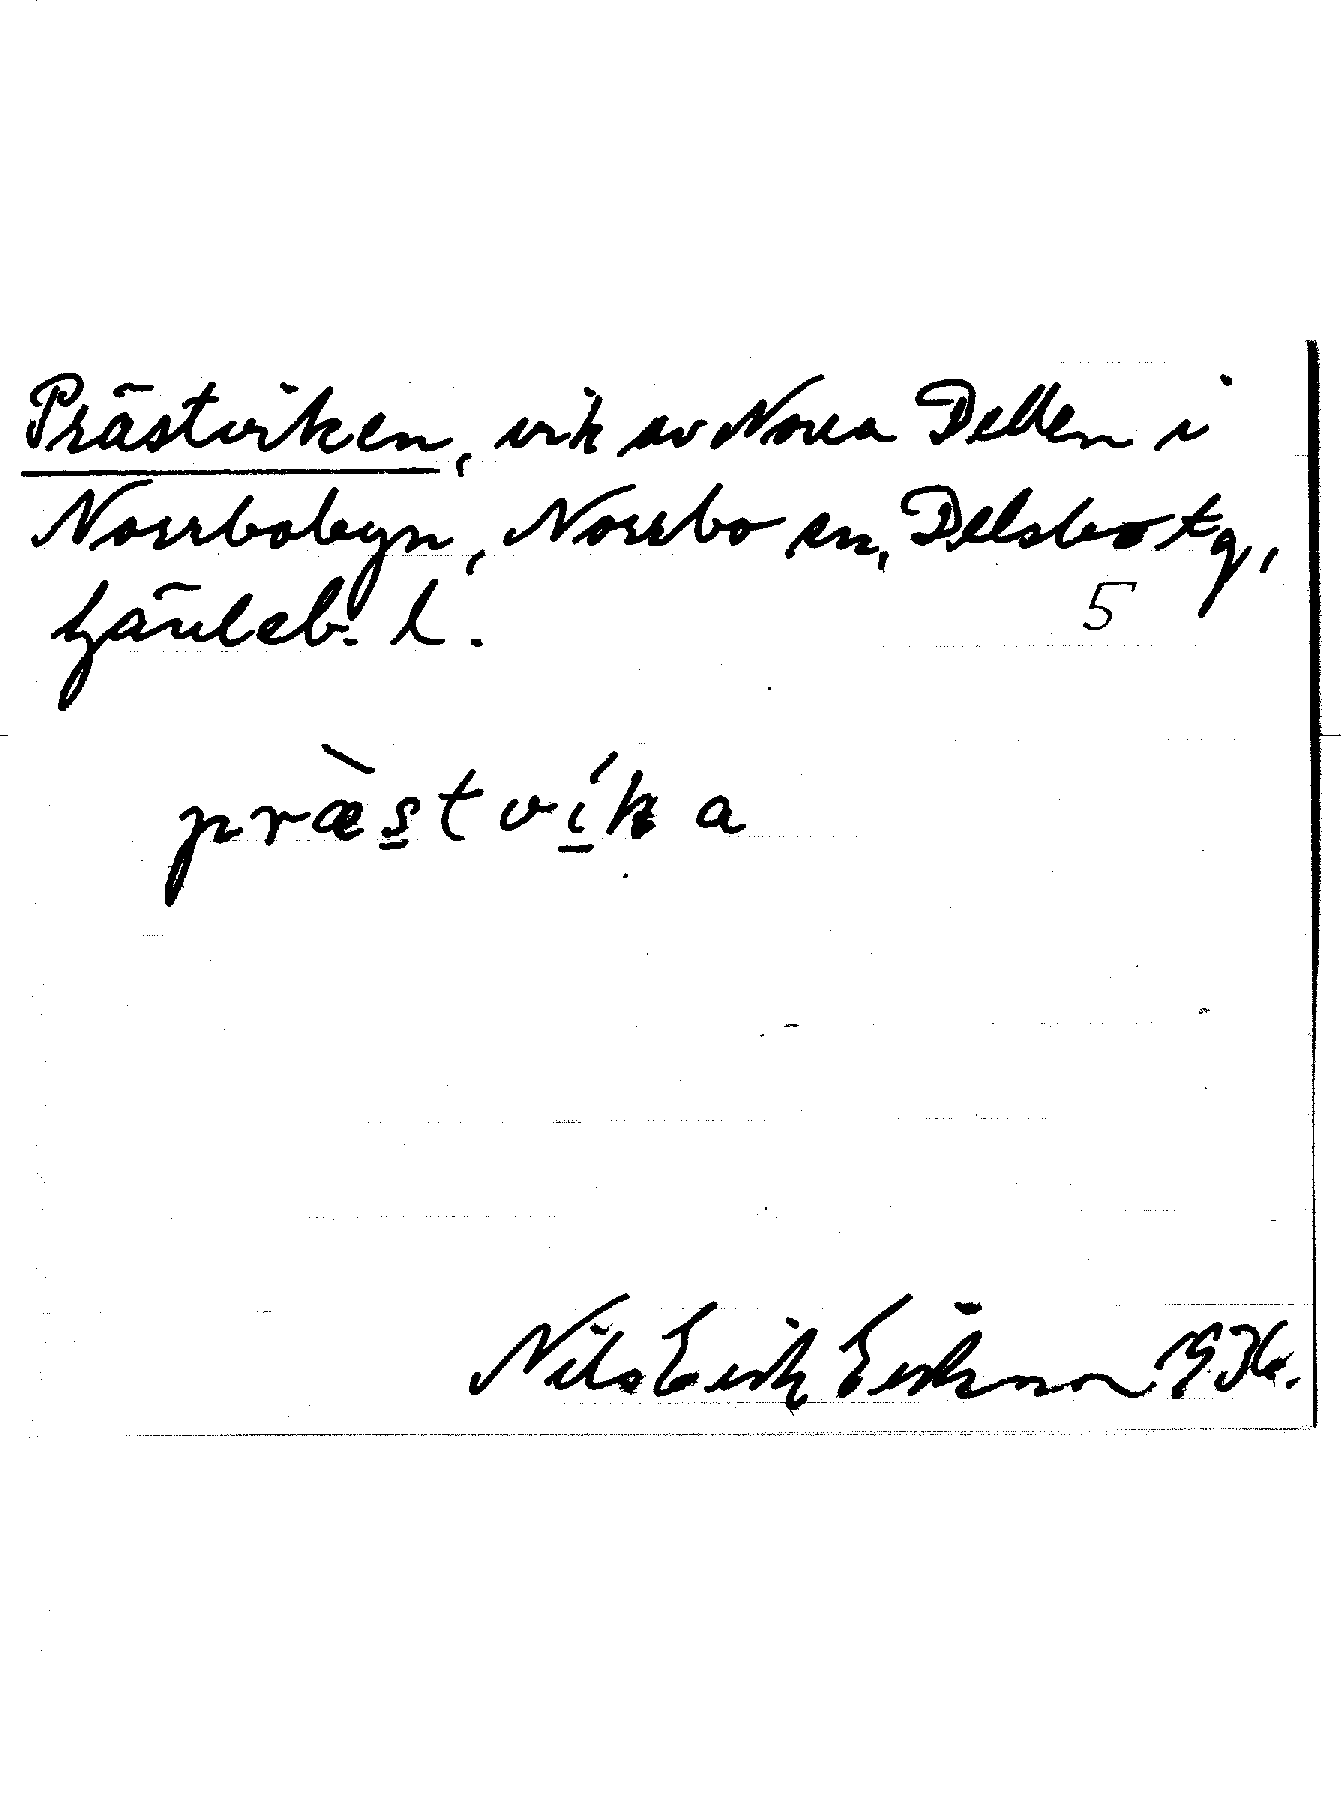 Prästviken, vik av Norra Dellen i
Norrbobyn, Norrbo sn, Delsbo tg,
Gävleb. l.
5
præ̀s̲tví̲ka
Nils Erik Eriksson 1936.